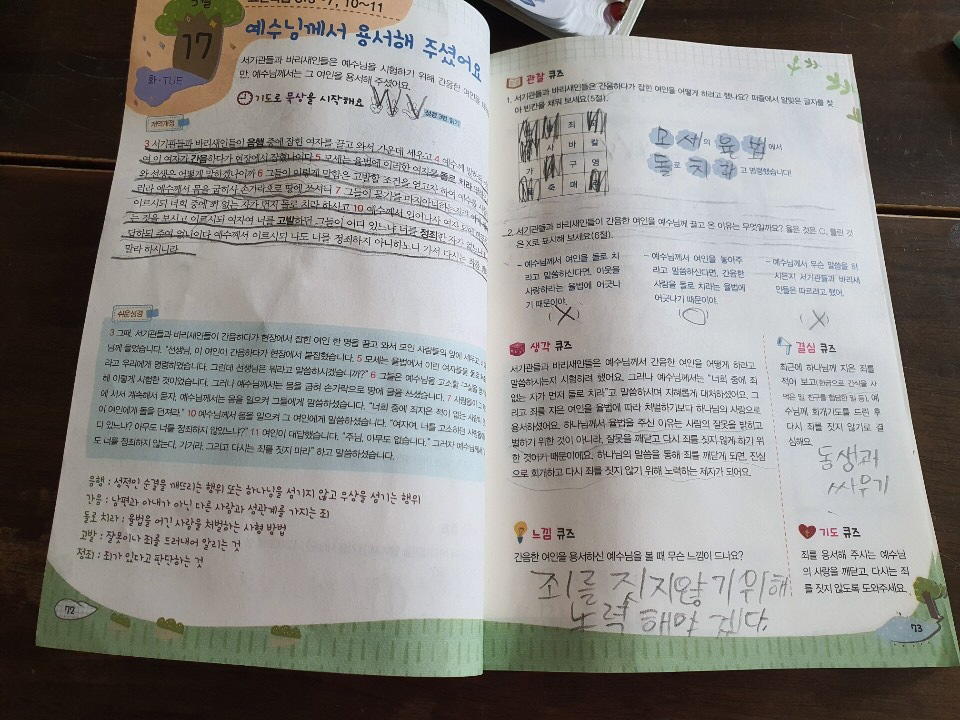 17
화·TUE
7, 10~11
예수님께서 용서해 주셨어요
서기관들과 바리새인들은 예수님을 시험하기 위해 간음한 여인을
만, 예수님께서는 그 여인을 용서해 주셨어요.
기도로 묵상을 시작해요
성경 3번 읽기
개역개정
3 서기관들과 바리새인들이 음행 중에 잡힌 여자를 끌고 와서 가운데 세우고 4 예수께
여 이 여자가 간음하다가 현장에서 잡혔나이다 5 모세는 율법에 이러한 여자를 돌로
와 선생은 어떻게 말하겠나이까 6 그들이 이렇게 말함은 고발할 조건을 얻고자 하여
러라 예수께서 몸을 굽히사 손가락으로 땅에 쓰시니 7 그들이 묻기를 마지아니하는지라
이르시되 너희 중에 죄 없는 자가 먼저 돌로 치라 하시고 10 예수께서 일어나사 여자 외에
는 것을 보시고 이르시되 여자여 너를 고발하던 그들이 어디 있느냐 너를 정죄한 자가 없느냐
대답하되 주여 없나이다 예수께서 이르시되 나도 너를 정죄하지 아니하노니 가서 다시는 죄를
말라 하시니라
쉬운성경
3 그때, 서기관들과 바리새인들이 간음하다가 현장에서 잡힌 여인 한 명을 끌고 와서 모인 사람들의 앞에 세우고
님께 물었습니다. “선생님, 이 여인이 간음하다가 현장에서 붙잡혔습니다. 5 모세는 율법에서 이런 여자들을
라고 우리에게 명령하였습니다. 그런데 선생님은 뭐라고 말씀하시겠습니까?” 6 그들은 예수님을 고소할 구실을
해 이렇게 시험한 것이었습니다. 그러나 예수께서는 몸을 굽혀 손가락으로 땅에 글을 쓰셨습니다. 7 사람들이
에 서서 계속해서 묻자, 예수께서는 몸을 일으켜 그들에게 말씀하셨습니다. “너희 중에 죄지은 적이 없는 사람이
이 여인에게 돌을 던져라.” 10 예수께서 몸을 일으켜 그 여인에게 말씀하셨습니다. “여자여, 너를 고소하던 사람들이
디 있느냐? 아무도 너를 정죄하지 않았느냐?” 11 여인이 대답했습니다. “주님, 아무도 없습니다.” 그러자 예수님께서
도 너를 정죄하지 않는다. 가거라. 그리고 다시는 죄를 짓지 마라” 하고 말씀하셨습니다.
음행 : 성적인 순결을 깨뜨리는 행위 또는 하나님을 섬기지 않고 우상을 섬기는 행위
간음 : 남편과 아내가 아닌 다른 사람과 성관계를 가지는 죄
돌로 치라 : 율법을 어긴 사람을 처벌하는 사형 방법
고발 : 잘못이나 죄를 드러내어 알리는 것
정죄 : 죄가 있다고 판단하는 것
72
관찰 퀴즈
1. 서기관들과 바리새인들은 간음하다가 잡힌 여인을 어떻게 하려고 했나요? 퍼즐에서 알맞은 글자를 찾
아 빈칸을 채워 보세요(5절).
죄
사 바 칼
가 구 영
축 매
모세의 율법에서
돌로 치라고 명령했습니다!
2. 서기관들과 바리새인들이 간음한 여인을 예수님께 끌고 온 이유는 무엇일까요? 옳은 것은 ○, 틀린 것
은 X로 표시해 보세요(6절).
- 예수님께서 여인을 돌로 치
라고 말씀하신다면, 이웃을
사랑하라는 율법에 어긋나
기 때문이야.
( X )
- 예수님께서 여인을 놓아주
라고 말씀하신다면, 간음한
사람을 돌로 치라는 율법에
어긋나기 때문이야.
( ○ )
- 예수님께서 무슨 말씀을 하
시든지 서기관들과 바리새
인들은 따르려고 했어.
( X )
생각 퀴즈
서기관들과 바리새인들은 예수님께서 간음한 여인을 어떻게 하라고
말씀하시는지 시험하려 했어요. 그러나 예수님께서는 “너희 중에 죄
없는 자가 먼저 돌로 치라”고 말씀하시며 지혜롭게 대처하셨어요. 그
리고 죄를 지은 여인을 율법에 따라 처벌하기보다 하나님의 사랑으로
용서하셨어요. 하나님께서 율법을 주신 이유는 사람의 잘못을 밝히고
벌하기 위한 것이 아니라, 잘못을 깨닫고 다시 죄를 짓지 않게 하기 위
한 것이기 때문이에요. 하나님의 말씀을 통해 죄를 깨닫게 되면, 진심
으로 회개하고 다시 죄를 짓지 않기 위해 노력하는 제자가 되어요.
결심 퀴즈
최근에 하나님께 지은 죄를
적어 보고
수님께, 회개기도를 드린 후
다시 죄를 짓지 않기로 결
심해요.
동생과
싸우기
느낌 퀴즈
간음한 여인을 용서하신 예수님을 볼 때 무슨 느낌이 드나요?
죄를 짓지않기위해
노력 해야 겠다
기도 퀴즈
죄를 용서해 주시는 예수님
의 사랑을 깨닫고, 다시는 죄
를 짓지 않도록 도와주세요.
73